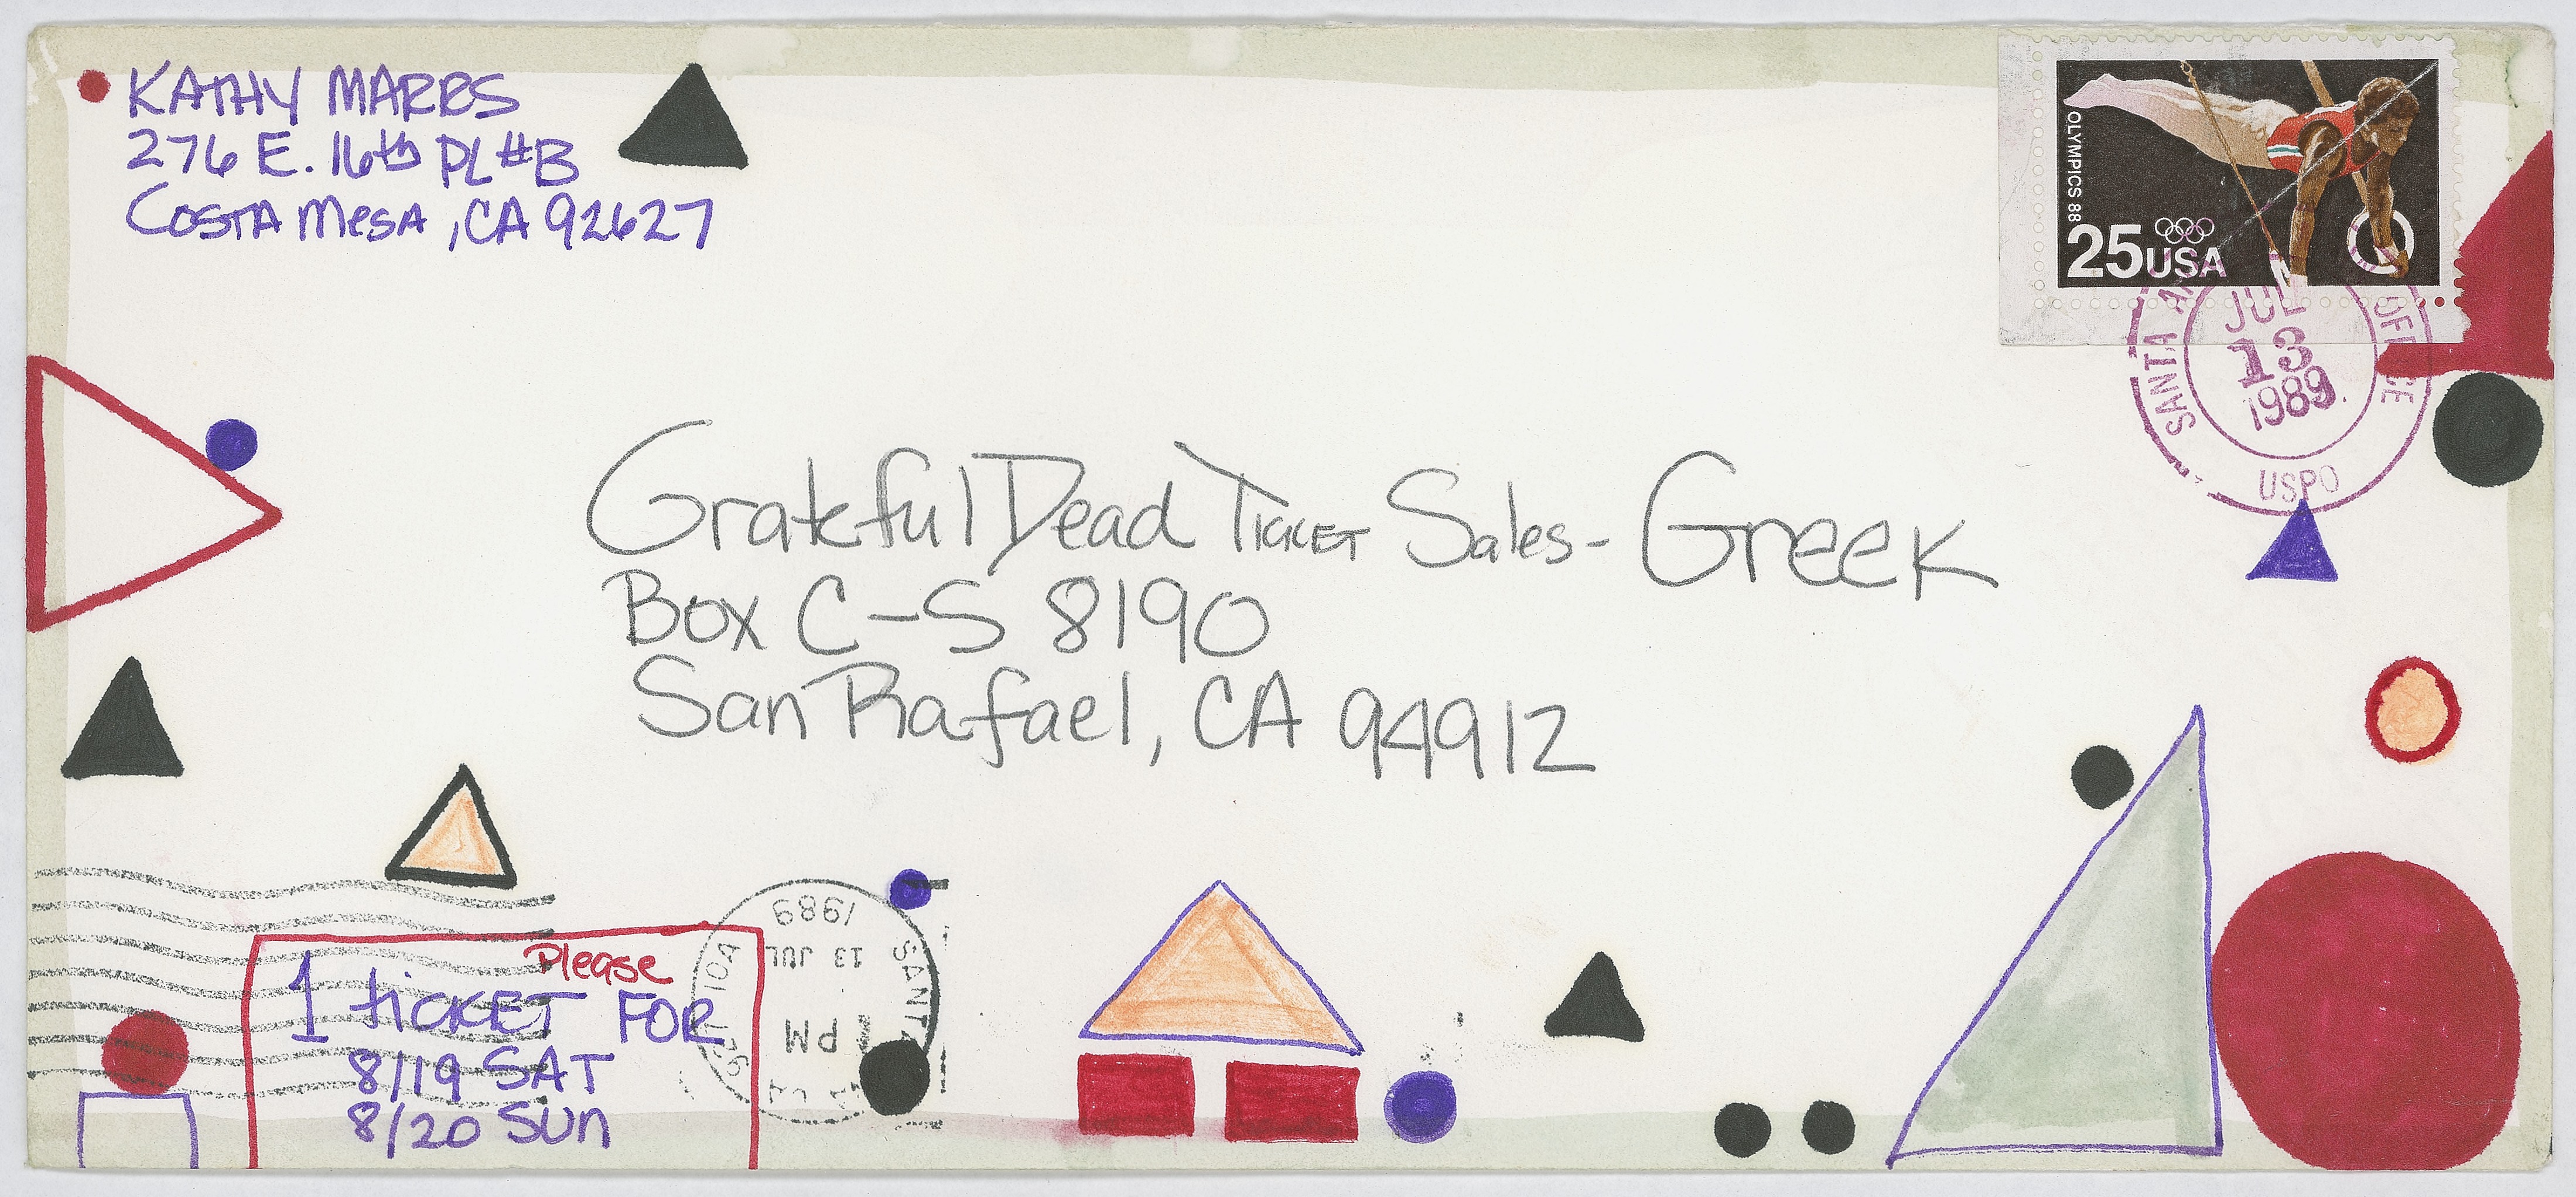 KATHY MARBS
276 E. 16th PL #B
COSTA MESA, CA 92627
OLYMPICS 88
25USA
SANTA OFFICE
JUL
13
1989
USPO
Grateful Dead TICKET Sales - GREEK
Box C-S 8190
San Rafael, CA 94912
Please
1 TICKET FOR
8/19 SAT
8/20 SUN
1989
13 JUL
PM